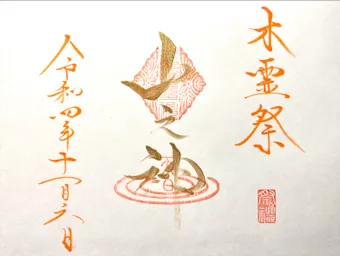 木霊祭
山之神
令和四年十一月六日